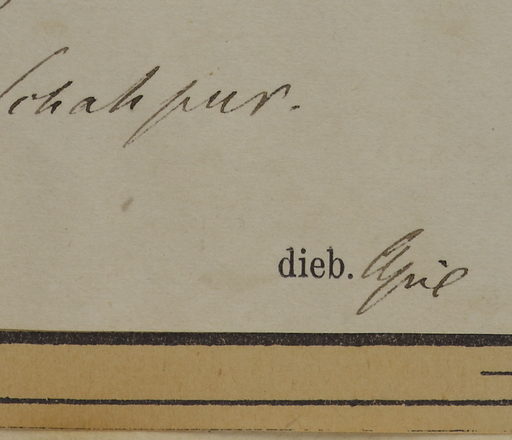 Schahpur.
dieb. April